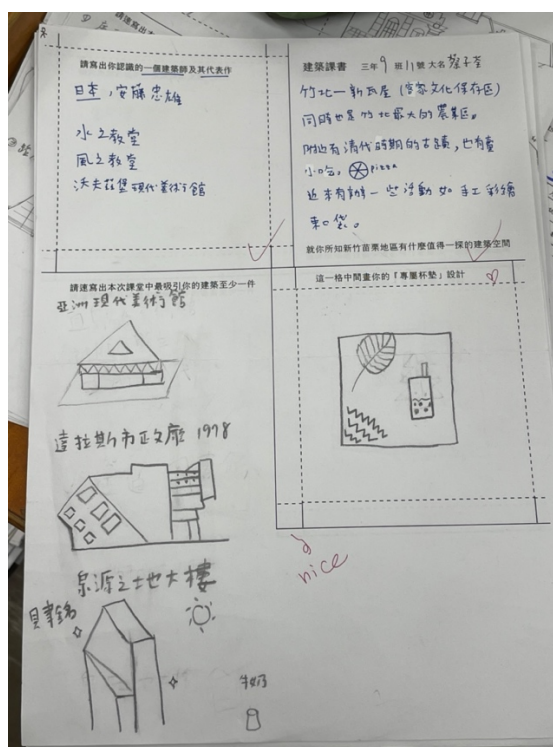 請寫出你認識的一個建築師及其代表作
日本,安藤忠雄
水之教堂
風之教堂
沃夫茲堡現代美術館
建築課書 三年9班11號大名
竹北一新瓦屋(客家文化保存區)
同時也是竹北最大的農業區。
附近有清代時期的古蹟,也有賣
小吃, pizza
近來有辦一些活動如手工彩繪
束口袋。
就你所知新竹苗栗地區有什麼值得一探的建築空間
請速寫出本次課堂中最吸引你的建築至少一件
亞洲現代美術館
達拉斯市政廳 1978
泉源之地大樓
貝聿銘
這一格中間畫你的「專屬杯墊」設計
nice